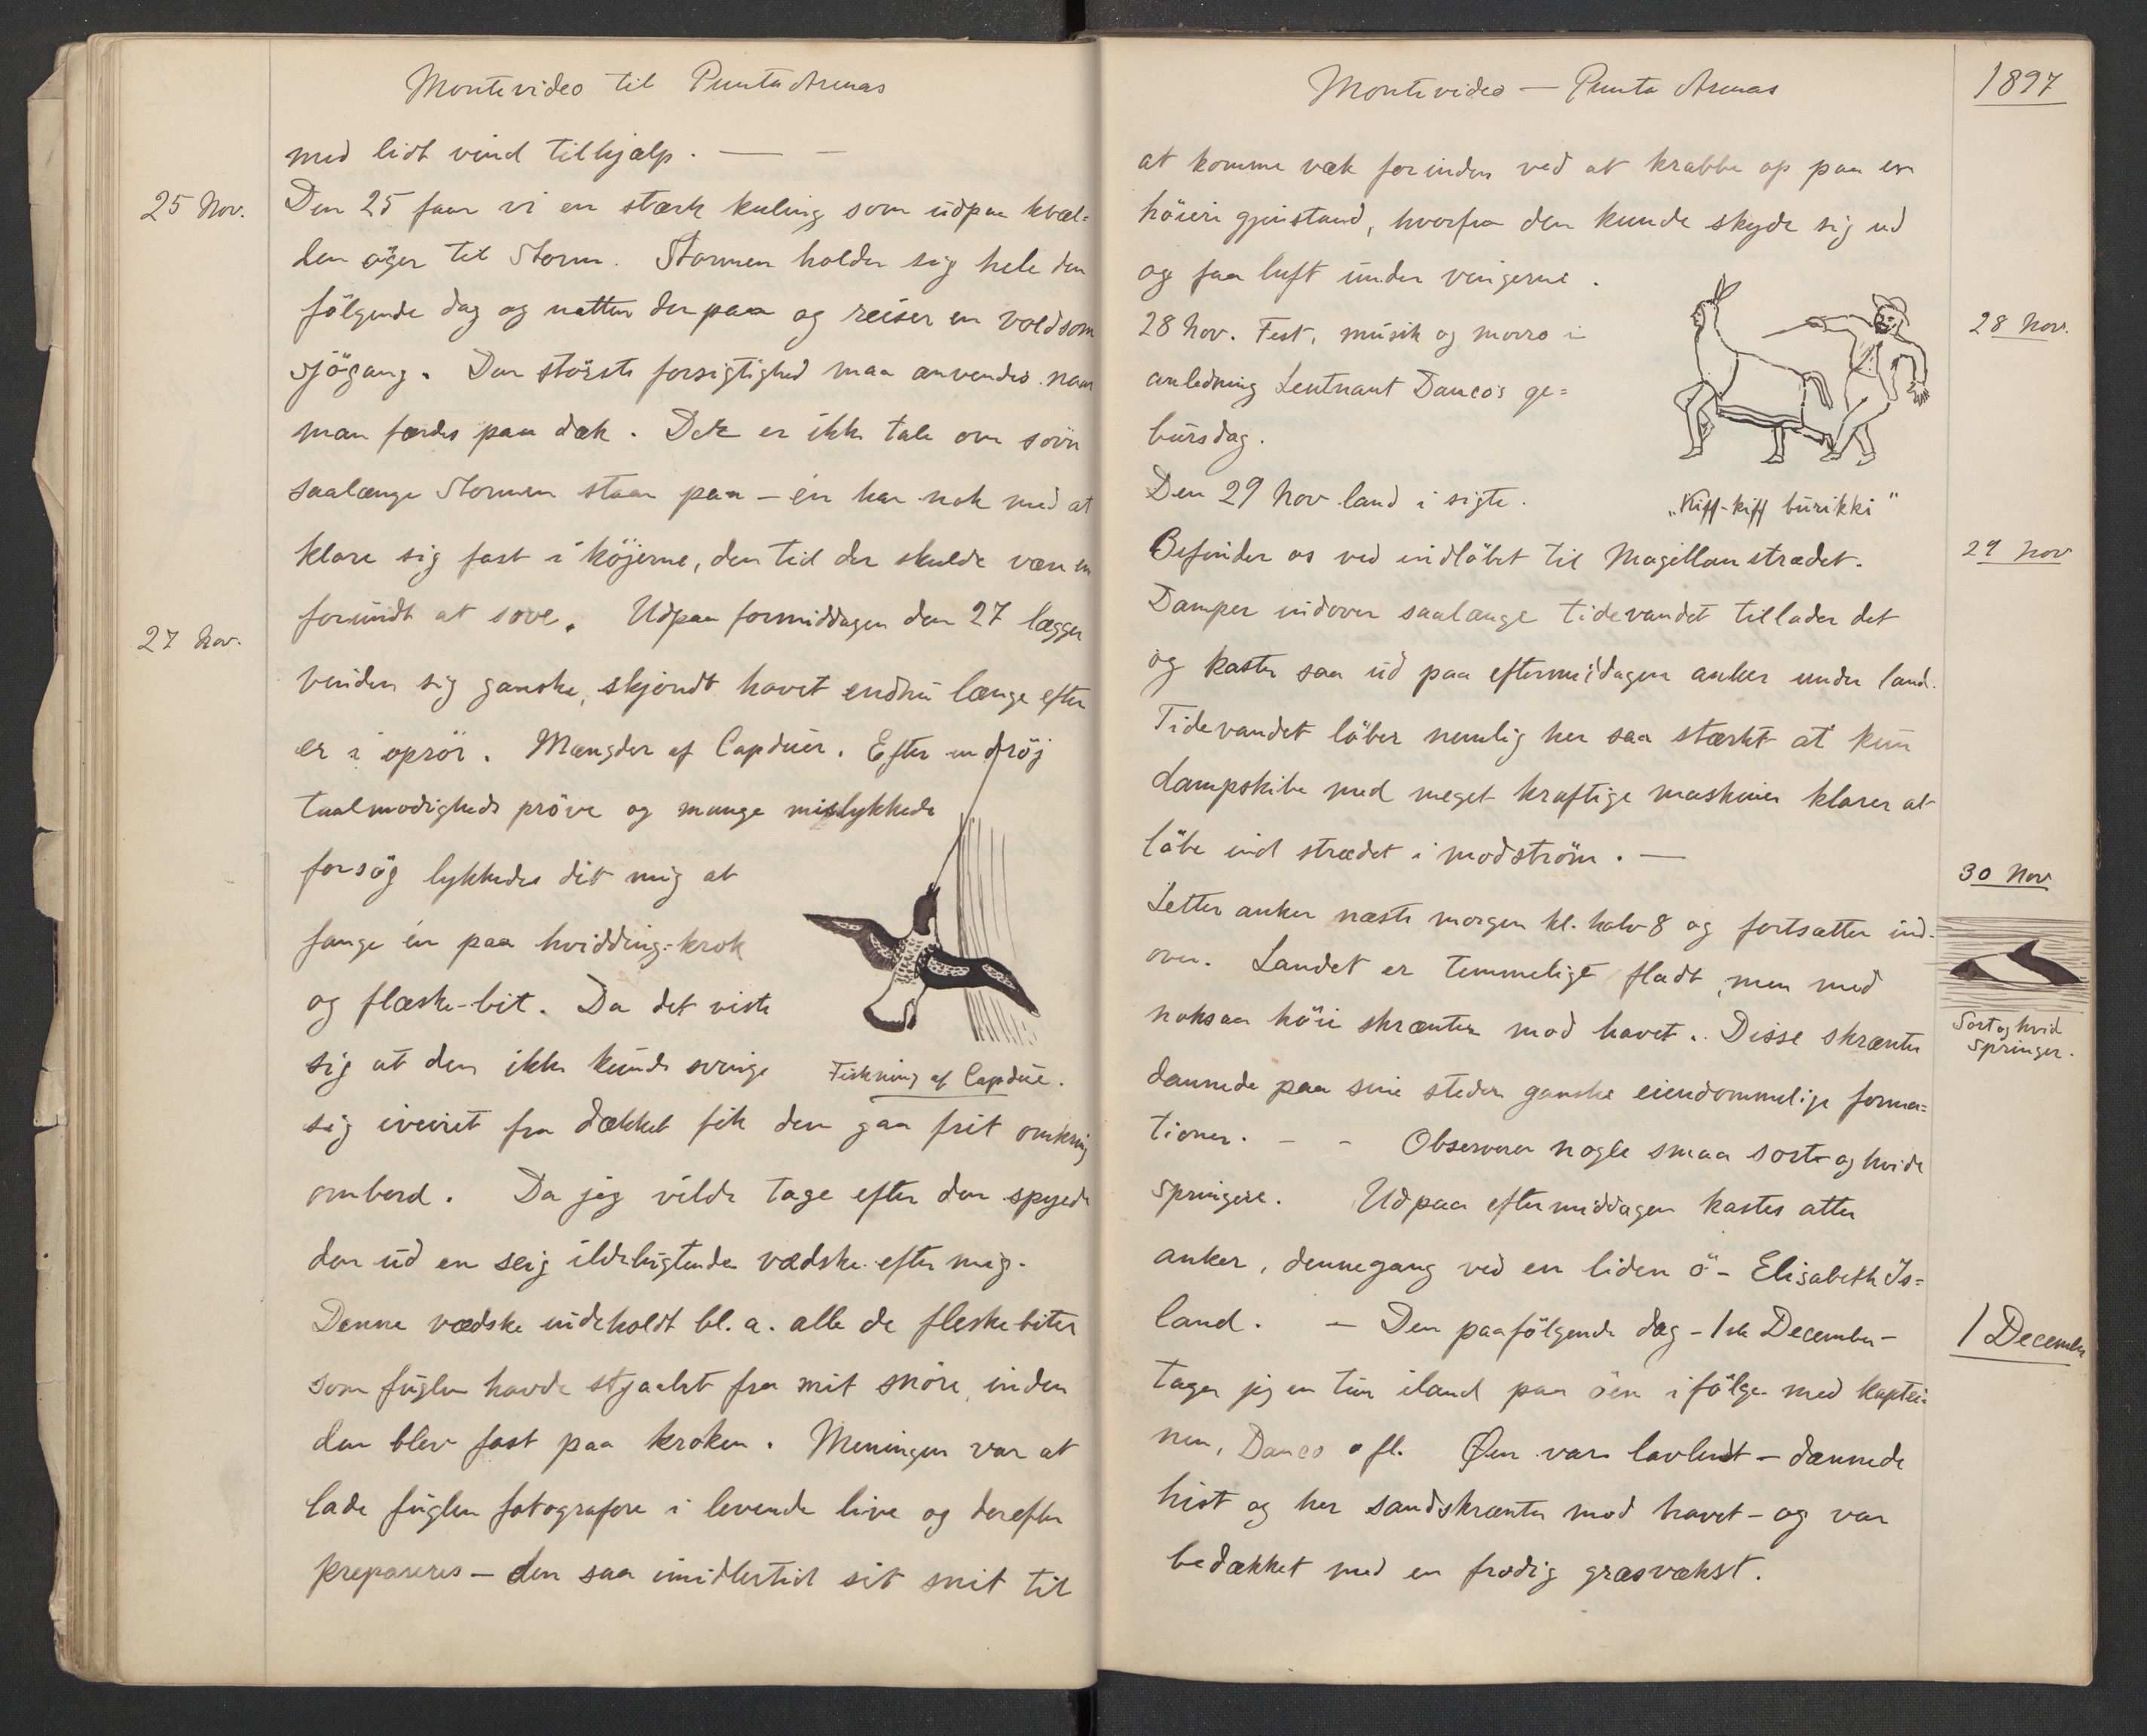 Montevideo til Punta Arenas
med lidt vind tilhjælp. — –
25 Nov.
Den 25 faar vi en stærk kuling som udpaa kvæl=
den øger til Storm. Stormen holder sig hele den
fölgende dag og natten derpaa og reiser en voldsom
sjögang. Den störste forsigtighed maa anvendes naar
man færdes paa dæk. Der er ikke tale om sövn
saalænge Stormen staar paa – én har nok med at
klare sig fast i köjerne, den tid der skulde være en
forundt at sove. Udpaa formiddagen den 27 lægger
27 Nov.
vinden sig ganske, skjöndt havet endnu længe efter
er i oprör. Mængder af Capduer. Efter en dröj
taalmodigheds pröve og mange mislykkede
forsög lykkedes det mig at
fange én paa hvidding-krok
og flæske-bit. Da det viste
sig at den ikke kunde svinge
Fiskning af Capdue.
sig iveiret fra dækket fik den gaa frit omkring
ombord. Da jeg vilde tage efter den spyede
den ud en seig ildelugtende vædske efter mig.
Denne vædske indeholdt bl. a. alle de fleskebiter
som fuglen havde stjaalet fra mit snöre, inden
den blev fast paa kroken. Meningen var at
lade fuglen fotografere i levende live og derefter
prepareres – den saa imidlertid sit snit til
Montevideo — Punta Arenas
1897
at komme væk forinden ved at krabbe op paa en
höiere gjenstand, hvorfra den kunde skyde sig ud
og faa luft under vingerne.
28 Nov. Fest, musik og morro i
28 Nov.
anledning Leutnant Danco's ge=
bursdag.
Den 29 Nov land i sigte.
„Kiff-kiff burikki"
Befinder os ved indlöbet til Magellanstrædet.
29 Nov
Damper indover saalænge tidevandet tillader det
og kaster saa ud paa eftermiddagen anker under land.
Tidevandet löber nemlig her saa stærkt at kun
dampskibe med meget kraftige maskiner klarer at
löbe ind strædet i modström. —
30 Nov
Letter anker næste morgen kl. halv 8 og fortsætter ind-
over. Landet er temmeligt fladt, men med
noksaa höie skrænter mod havet. Disse skrænter
Sort og hvid
springer.
dannede paa sine steder ganske eiendommelige forma=
tioner. – – Observerer nogle smaa sorte og hvide
springere. Udpaa eftermiddagen kastes atter
anker, dennegang ved en liden ö – Elisabeth Is=
land. – Den paafölgende dag – 1ste December –
1 December
tager jeg en tur iland paa öen i fölge med kaptei=
nen, Danco o fl. Øen var lavlendt – dannede
hist og her sandskrænter mod havet – og var
bedækket med en frodig græsvækst.